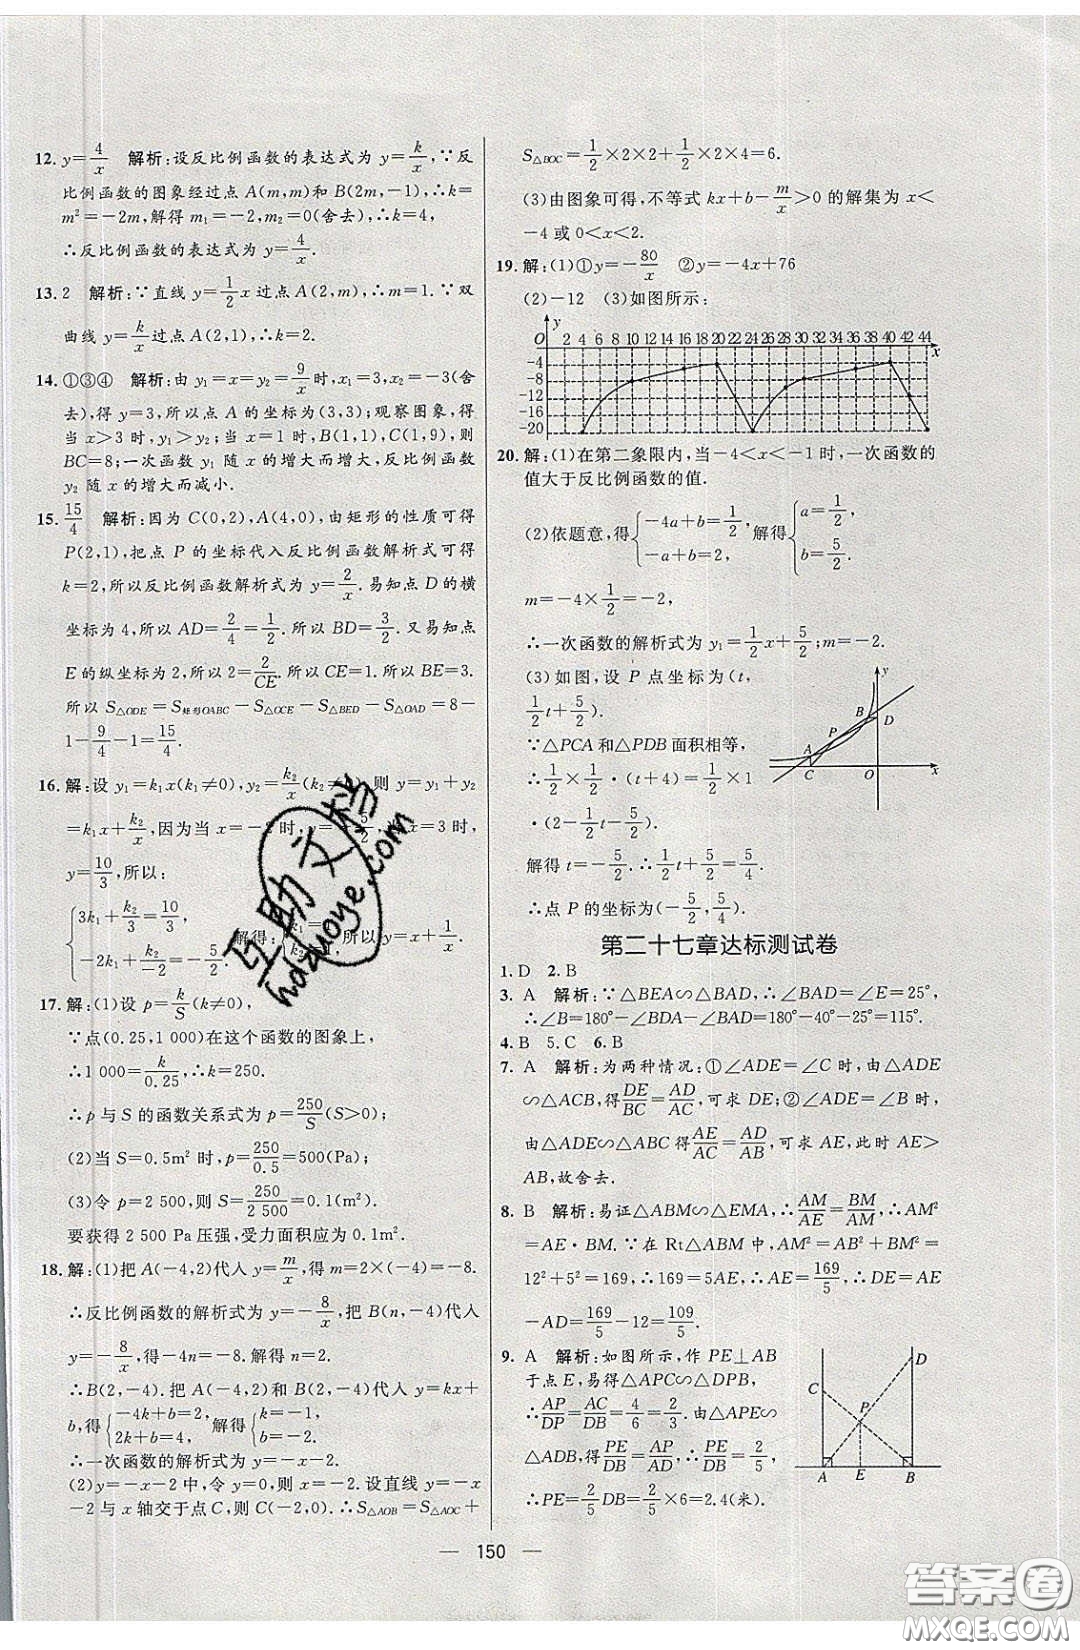 12. y=4/x　解析:设反比例函数的表达式为 y=k/x,∵反
比例函数的图象经过点 A(m,m)和 B(2m,-1),∴k=
m²=-2m,解得 m₁=-2,m₂=0(舍去),∴k=4,
∴反比例函数的表达式为 y=4/x.
13. 2　解析:∵直线 y=1/2x 过点 A(2,m),∴m=1.∵双
曲线 y=k/x过点 A(2,1),∴k=2.
14. ①③④　解析:由 y₁=x=y₂=9/x时,x₁=3,x₂=-3(舍
去),得 y=3,所以点 A 的坐标为(3,3);观察图象,得
当 x>3 时,y₁>y₂;当 x=1 时,B(1,1),C(1,9),则
BC=8;一次函数 y₁ 随 x 的增大而增大,反比例函数
y₂ 随 x 的增大而减小.
15. 15/4　解析:因为 C(0,2),A(4,0),由矩形的性质可得
P(2,1),把点 P 的坐标代入反比例函数解析式可得
k=2,所以反比例函数解析式为 y=2/x.易知点 D 的横
坐标为4,所以 AD=2/4=1/2.所以 BD=3/2.又易知点
E 的纵坐标为2,所以 2=2/CE.所以 CE=1.所以 BE=3.
所以 S△ODE=S矩形OABC-S△OCE-S△BED-S△OAD=8-
1-9/4-1=15/4.
16. 解:设 y₁=k₁x(k₁≠0),y₂=k₂/x(k₂≠0),则 y=y₁+y₂
=k₁x+k₂/x,因为当 x=-2 时,y=-5/2,当 x=3 时,
y=10/3,所以:
{3k₁+k₂/3=10/3,
-2k₁+k₂/-2=-5/2, 解得:{k₁=1, 所以 y=x+1/x.
17. 解:(1)设 p=k/S(k≠0),
∵点(0.25,1 000)在这个函数的图象上,
∴1 000=k/0.25,∴k=250.
∴p 与 S 的函数关系式为 p=250/S(S>0);
(2)当 S=0.5m² 时,p=250/0.5=500(Pa);
(3)令 p=2 500,则 S=250/2 500=0.1(m²).
要获得 2 500 Pa 压强,受力面积应为 0.1m².
18. 解:(1)把 A(-4,2)代入 y=m/x,得 m=2×(-4)=-8.
∴反比例函数的解析式为 y=-8/x,把 B(n,-4)代入
y=-8/x,得-4n=-8.解得 n=2.
∴B(2,-4).把 A(-4,2)和 B(2,-4)代入 y=kx+
b,得{-4k+b=2, 2k+b=-4, 解得{k=-1, b=-2.
∴一次函数的解析式为 y=-x-2.
(2)y=-x-2 中,令 y=0,则 x=-2.设直线 y=-x
-2 与 x 轴交于点 C,则 C(-2,0).∴S△AOB=S△AOC+
S△BOC=1/2×2×2+1/2×2×4=6.
(3)由图象可得,不等式 kx+b-m/x>0 的解集为 x<
-4 或 0<x<2.
19. 解:(1)①y=-80/x　②y=-4x+76
(2)-12　(3)如图所示:
y
O 2 4 6 8 10 12 14 16 18 20 22 24 26 28 30 32 34 36 38 40 42 44
x
-4
-8
-12
-16
-20
20. 解:(1)在第二象限内,当-4<x<-1时,一次函数的
值大于反比例函数的值.
(2)依题意,得{-4a+b=1/2, -a+b=2, 解得{a=1/2, b=5/2.
m=-4×1/2=-2,
∴一次函数的解析式为 y₁=1/2x+5/2;m=-2.
(3)如图,设 P 点坐标为(t,
1/2t+5/2).
∵△PCA 和△PDB 面积相等,
∴1/2×1/2·(t+4)=1/2×1
·(2-1/2t-5/2).
解得 t=-5/2.∴1/2t+5/2=5/4.
∴点 P 的坐标为(-5/2,5/4).
y
B
D
P
A
C O x
第二十七章达标测试卷
1. D　2. B
3. A　解析:∵△BEA∽△BAD,∴∠BAD=∠E=25°,
∴∠B=180°-∠BDA-∠BAD=180°-40°-25°=115°.
4. B　5. C　6. B
7. A　解析:为两种情况:①∠ADE=∠C 时,由△ADE
∽△ACB,得DE/BC=AD/AC,可求 DE;②∠ADE=∠B 时,
由△ADE∽△ABC 得AE/AC=AD/AB,可求 AE,此时 AE>
AB,故舍去.
8. B　解析:易证△ABM∽△EMA,∴AM/AE=BM/AM,∴AM²
=AE·BM.∵在 Rt△ABM 中,AM²=AB²+BM²=
12²+5²=169,∴169=5AE,∴AE=169/5,∴DE=AE
-AD=169/5-12=109/5.
9. A　解析:如图所示,作 PE⊥AB
于点 E,易得△APC∽△DPB,
∴AP/DP=AC/DB=4/6=2/3.由△APE∽
△ADB,得PE/DB=AP/AD,∴PE/DB=2/5,
∴PE=2/5DB=2/5×6=2.4(米).
D
C
P
A E B
150
互助文档
hdzuoye.com
答案圈
MXQE.COM